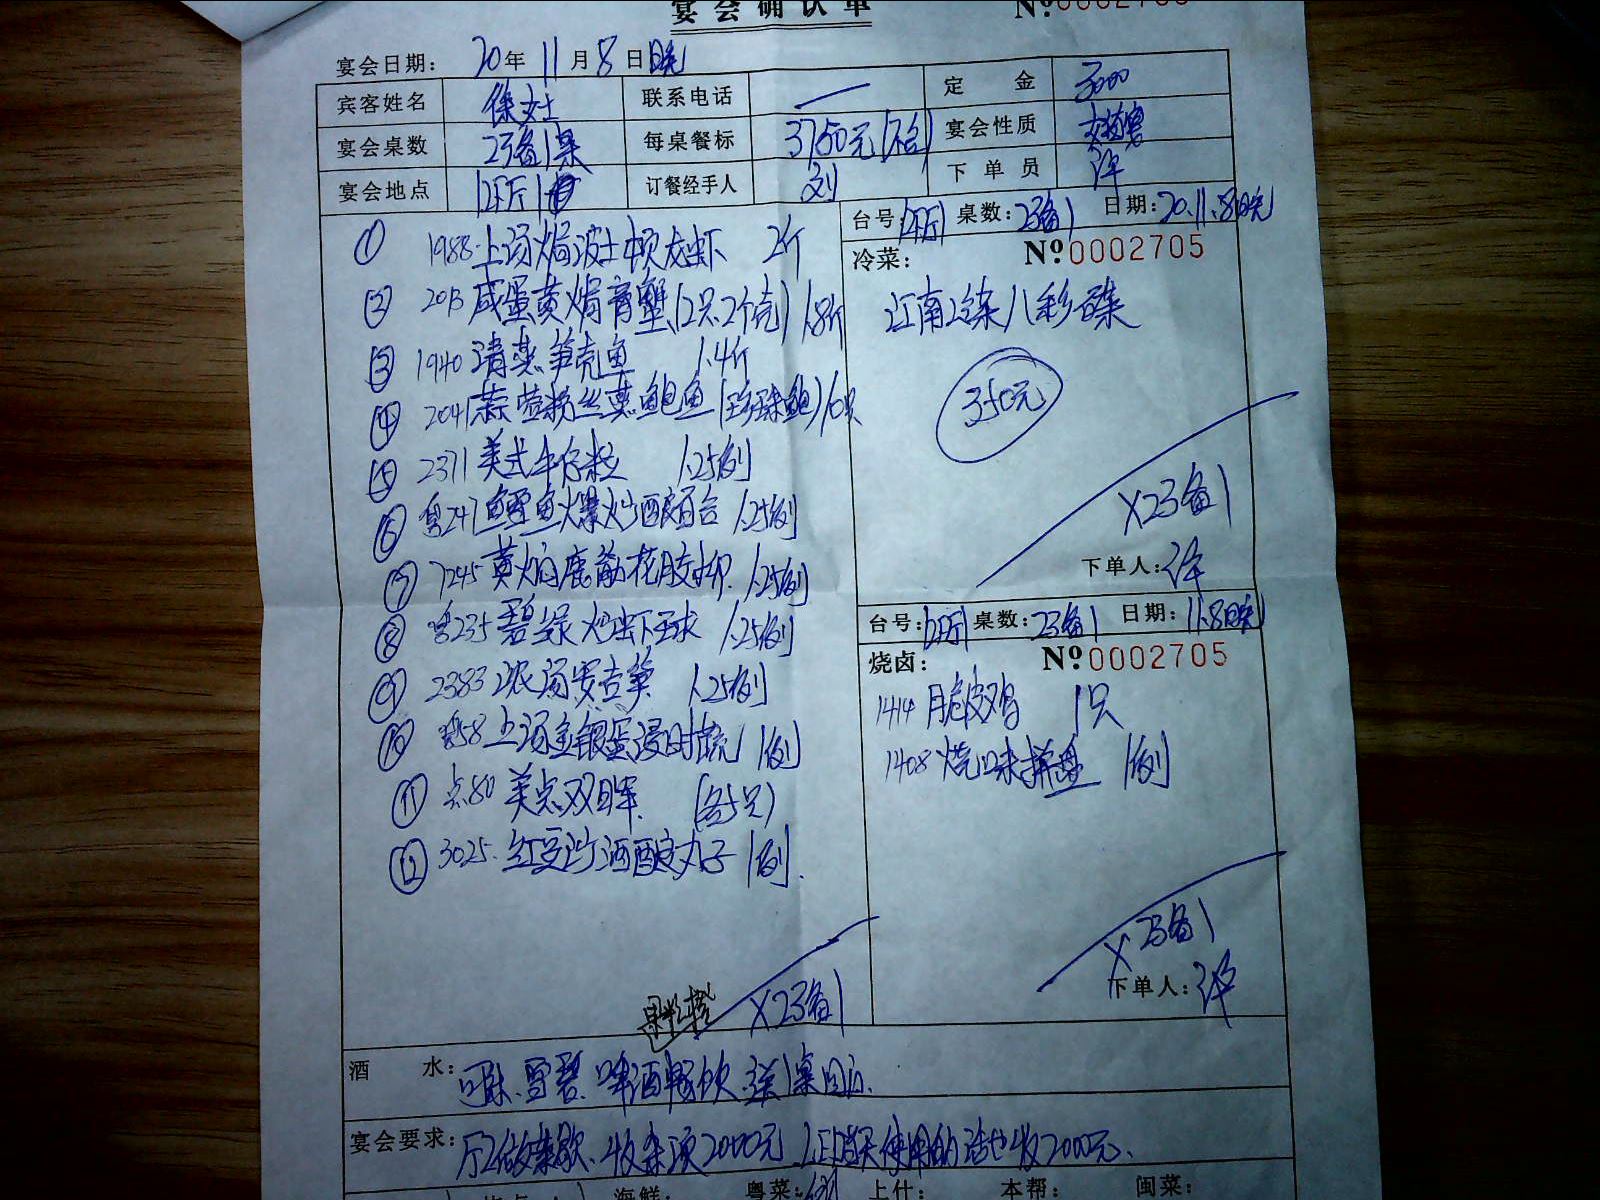 宴会确认单 Nº0002705
宴会日期: 20年11月8日晚
宾客姓名 徐女士 联系电话 — 定金 3000
宴会桌数 23备1桌 每桌餐标 3750元 宴会性质
宴会地点 订餐经手人 刘 下单员 许
台号: 桌数:23备1 日期:20.11.8晚
① 1988 上汤焗波士顿龙虾 2斤
② 2013 咸蛋黄焗膏蟹(2只,2个壳) 1.8斤
③ 1940 清蒸笋壳鱼 1.4斤
④ 2041 蒜蓉粉丝蒸鲍鱼 10只
⑤ 2371 美式牛仔粒 1.25例
⑥ 粤247 鳄鱼爆炒酿百合 1.25例
⑦ 7245 黄焖鹿筋花胶 1.25例
⑧ 粤235 碧绿炒虾球 1.25例
⑨ 2383 浓汤安吉笋 1.25例
⑩ 粤58 上汤金银蛋浸时蔬 1例
⑪ 点80 美点双晖 (各5只)
⑫ 3025 红豆沙酒酿丸子 1例
X23备1
冷菜: Nº0002705
江南冷菜八彩碟
350元
X23备1
下单人: 许
台号: 桌数:23备1 日期:11.8晚
烧卤: Nº0002705
1414 脆皮鸡 1只
1408 烧味拼盘 1例
X23备1
下单人: 许
酒水: 可乐、雪碧、啤酒畅饮、送1桌
宴会要求: 收 2000元 使用的话也收2000元.
海鲜: 粤菜: 上什: 本帮: 闽菜: